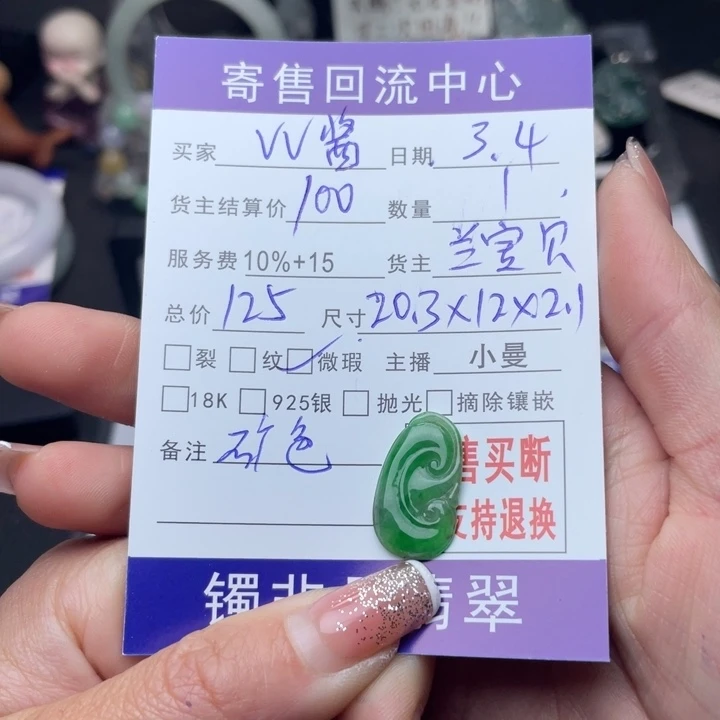 寄售回流中心
买家 VV酱 日期 3.4
货主结算价 100 数量 1
服务费 10%+15 货主 兰宝贝
总价 125 尺寸 20.3×12×2.1
裂 纹 微瑕 主播 小曼
18K 925银 抛光 摘除镶嵌
备注 矿色
售买断
支持退换
镯 翡翠